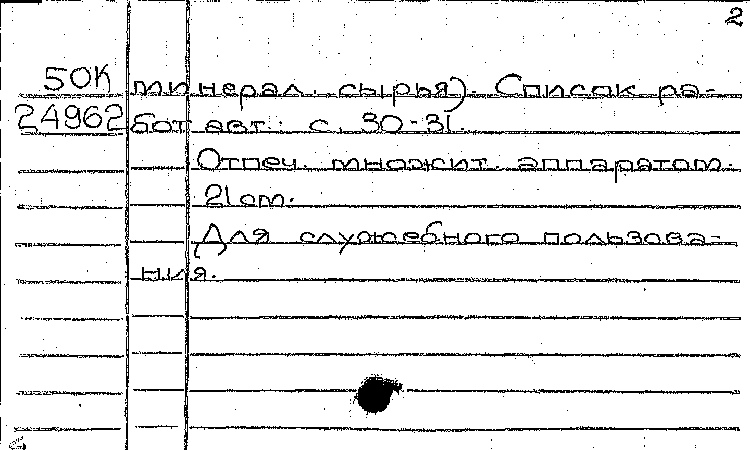 2
50К минерал. сырья). Список ра-
24962 бот авт.: с. 30-31.
Отпеч. множит. аппаратом.
21 см.
Для служебного пользова-
ния.